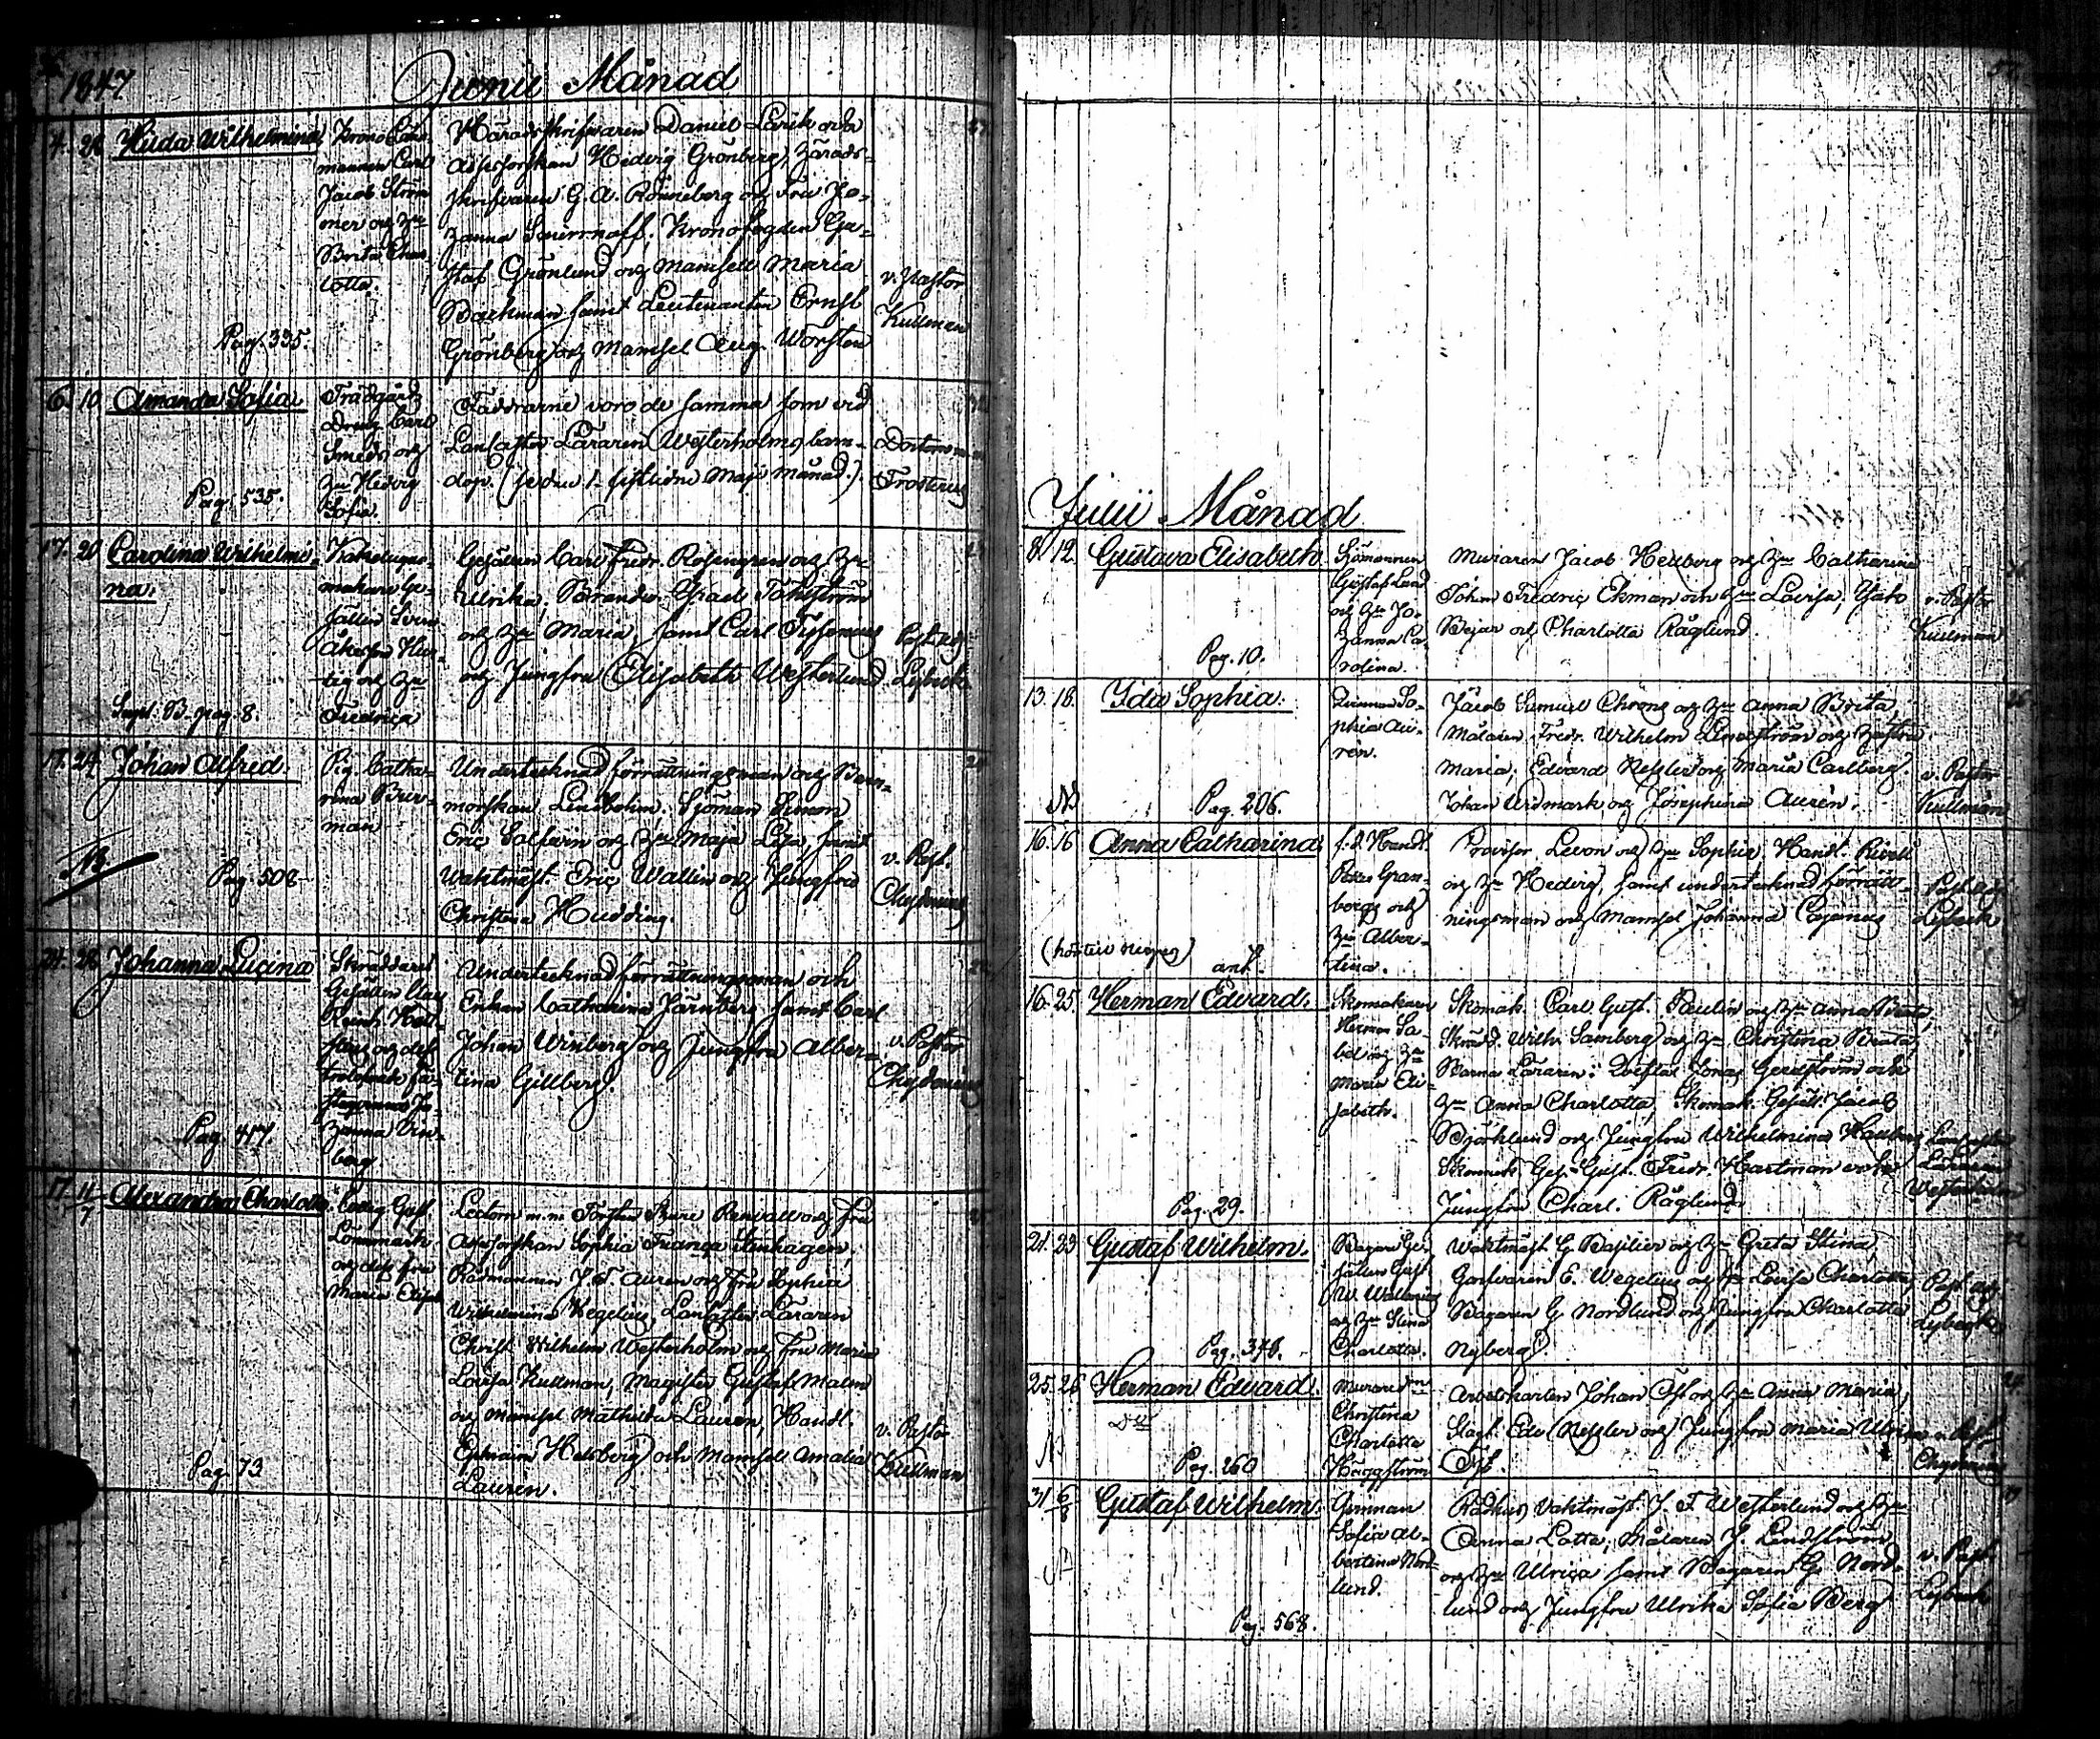 1847
Junii Månad
4. 24 Hilda Wilhelmina
Krono Läns
mannen Carl
Jacob Ström
mer och Hu
Brita Char
lotta.
Häradskrifvaren Daniel och
Assessorskan Hedvig Grönberg, Härads-
skrifvaren G. A. Rönneberg och Fru Jo-
hanna Kronofogden Gu-
staf Grönlund och Mamsell Maria
Backman samt Leutenanten Ernst
Grönberg och Mamsel Aug. Worsten
v. Pastor
Kullman
Pag. 335.
6. 10 Amanda Sofia
Trädgårds
Dreng Carl
Smeds och
Hu Hedvig
Sofia.
Faddrarne voro de samma som vid
Läraren Westerholms barn-
dop. (se den 1 sistlidne Maji månad.)
Doctorn
Frosterus
Pag. 535.
17. 20 Carolina Wilhelmi-
na.
Kakelugns-
makare Ge-
sällen Sven
Åkesson
och Hu
Fredrica
Gesällen Carl Fredr. Rosengren och Hu
Ulrika; Töhström
och Hu Maria, samt Carl
och Jungfru Elisabeth Westerlund.
Past. adj
Lybeck
Supl. B. pag 8.
17. 24 Johan Alfred.
Pig. Catha-
rina Bur-
man
Undertecknad förrättningsman och Barn-
morskan Lindholm; Sjöman Simon
Eric och Hu Maja Lisa, samt
Waktmäst. Eric Wallin och Jungfru
Christina Hudding.
v. Past.
Chydenius
NB
Pag. 508
24. 28 Johanna Lucina
Skräddare
Gesällen
och dess
trolofvade fä-
steqvinna Jo-
hanna Vin-
berg.
Undertecknad förrättningsman och
Enkan Catharina Järnberg samt Carl
Johan Winberg och Jungfru Alber-
tina Gillberg.
v. Pastor
Chydenius
Pag. 417.
17. 11/7 Alexandra Charlotta
Gust
Lönnmark
och dess fru
Maria Elisab
Lectorn m.m. Torsten Ture Renvall och Fru
Assessorskan Sophia Stenhagen,
Rådmannen J. F. Auren och Fru Sophia
Wilhelmina Wegelius, Läraren
Christ. Wilhelm Westerholm och Fru Maria
Lovisa Kullman, Magister Gustaf Malm
och Mamsel Mathilda Lauren, Handl.
Ephraim Helsberg och Mamsell Amalia
Lauren.
v. Pastor
Kullman
Pag. 73
Julii Månad
8. 12. Gustava Elisabeth
Sjömannen
Gustaf Lund
och Hu Jo-
hanna Ca-
rolina.
Muraren Jacob Hedberg och Hu Catharina
Johan Fredric Ekman och Hu Lovisa;
och Charlotta Råglund.
v. Pastor
Kullman
Pag. 10.
13. 18. Ida Sophia.
Qvinnan So-
phia Au-
rén.
Jacob Samuel Chrons och Hu Anna Brita,
Målaren Fredr. Wilhelm Lindström och Hustru
Maria; Edvard Kessler och Maria Carlberg.
Johan Urdmark och Josephina Aurén.
v. Pastor
Kullman
Pag. 206.
16. 16 Anna Catharina
f. d. Handl.
Gran-
berg och
Hu Alber-
tina.
Provisor Levon och Hu Sophia, Handl.
och Hu Hedvig, samt undertecknad förrätt-
ningsman och Mamsel Johanna Cajanus
Past. adj
Lybeck
ant.
16. 25. Herman Edvard.
Skomakaren
Herman Sa-
bel och Hu
Maria Eli-
sabeth.
Skomak. Carl Gust. Paulin och Hu Anna Beata,
Skrädd. Wilh. Samberg och Hu Christina Beata,
Barna Läraren Jonas och
Hu Anna Charlotta, Skomak. Gesäll. Jacob
Björklund och Jungfru Wilhelmina
Skomak. Ges. Gust. Fredr. Hartman och
Jungfru Charl. Råglund.
Läraren
Westerholm
Pag. 29.
21. 23 Gustaf Wilhelm.
Bagare Ge-
sällen Gust.
W.
och Hu Stina
Charlotta.
Waktmäst. G. Basilier och Hu Greta Stina,
Garfvaren E. Wegelius och Hu Lovisa Charlotta,
Bagaren G. Nordlund och Jungfru Charlotta
Nyberg
Past. adj.
Lybeck
Pag. 348.
25. 26 Herman Edvard.
Christina
Charlotta
Häggström
Arbetskarlen Johan Öst och Hu Anna Maria,
Slagt. Edv. Kessler och Jungfru Maria
Öst.
v. Past.
Chydenius
Pag. 260
31. 6/8 Gustaf Wilhelm.
Qvinnan
Sofia Al-
bertina Nord-
lund.
Rådhus Vaktmäst. J. F. Westerlund och Hu
Anna Lotta; Målaren J. Lindström
och Hu Ulrica samt Bagaren G. Nord-
lund och Jungfru Ulrika Sofia Berg
v. Past.
Lybeck
Pag. 568.